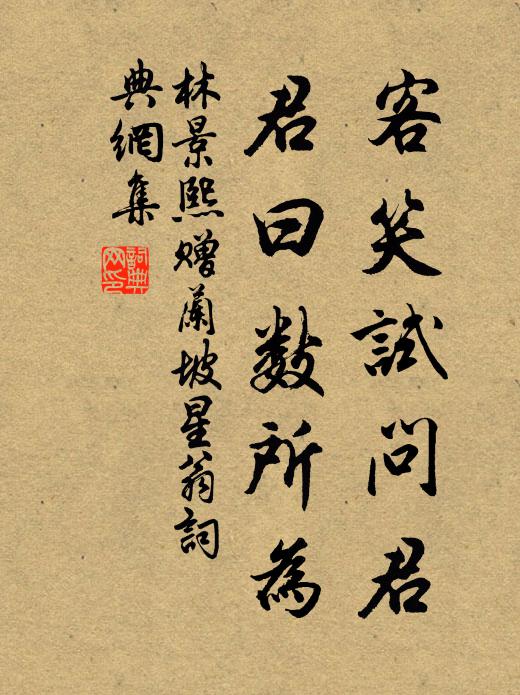 客笑試問君
君曰數所為
林景熙贈蘭坡星翁詞
典網集
詞典
网印